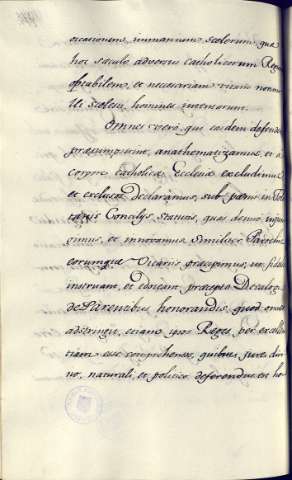 occasionem, immanium scelerum, quæ
hoc sæculo adversus catholicorum Regum
et necessariam vitam nonnu
lli scelesti homines
Omnes vero, qui eosdem defendere
præsumpserint, anathematizamus, et a
corpore catholicæ Ecclesiæ excludimus
et exclusos declaramus, sub pœnis in Tole
tanis Concilijs statutis, quas denuo injun
gimus, et innovamus. Similiter Parochis
eorumque Vicariis præcipimus, ut fideles
instruant, et edoceant præcepto Decalogi
de Parentibus honorandis, quod omnes
adstringit, etiam ipsos Reges, per excellen
tiam esse comprehensos, quibus jure divi
no, naturali, et politico deferendus est ho